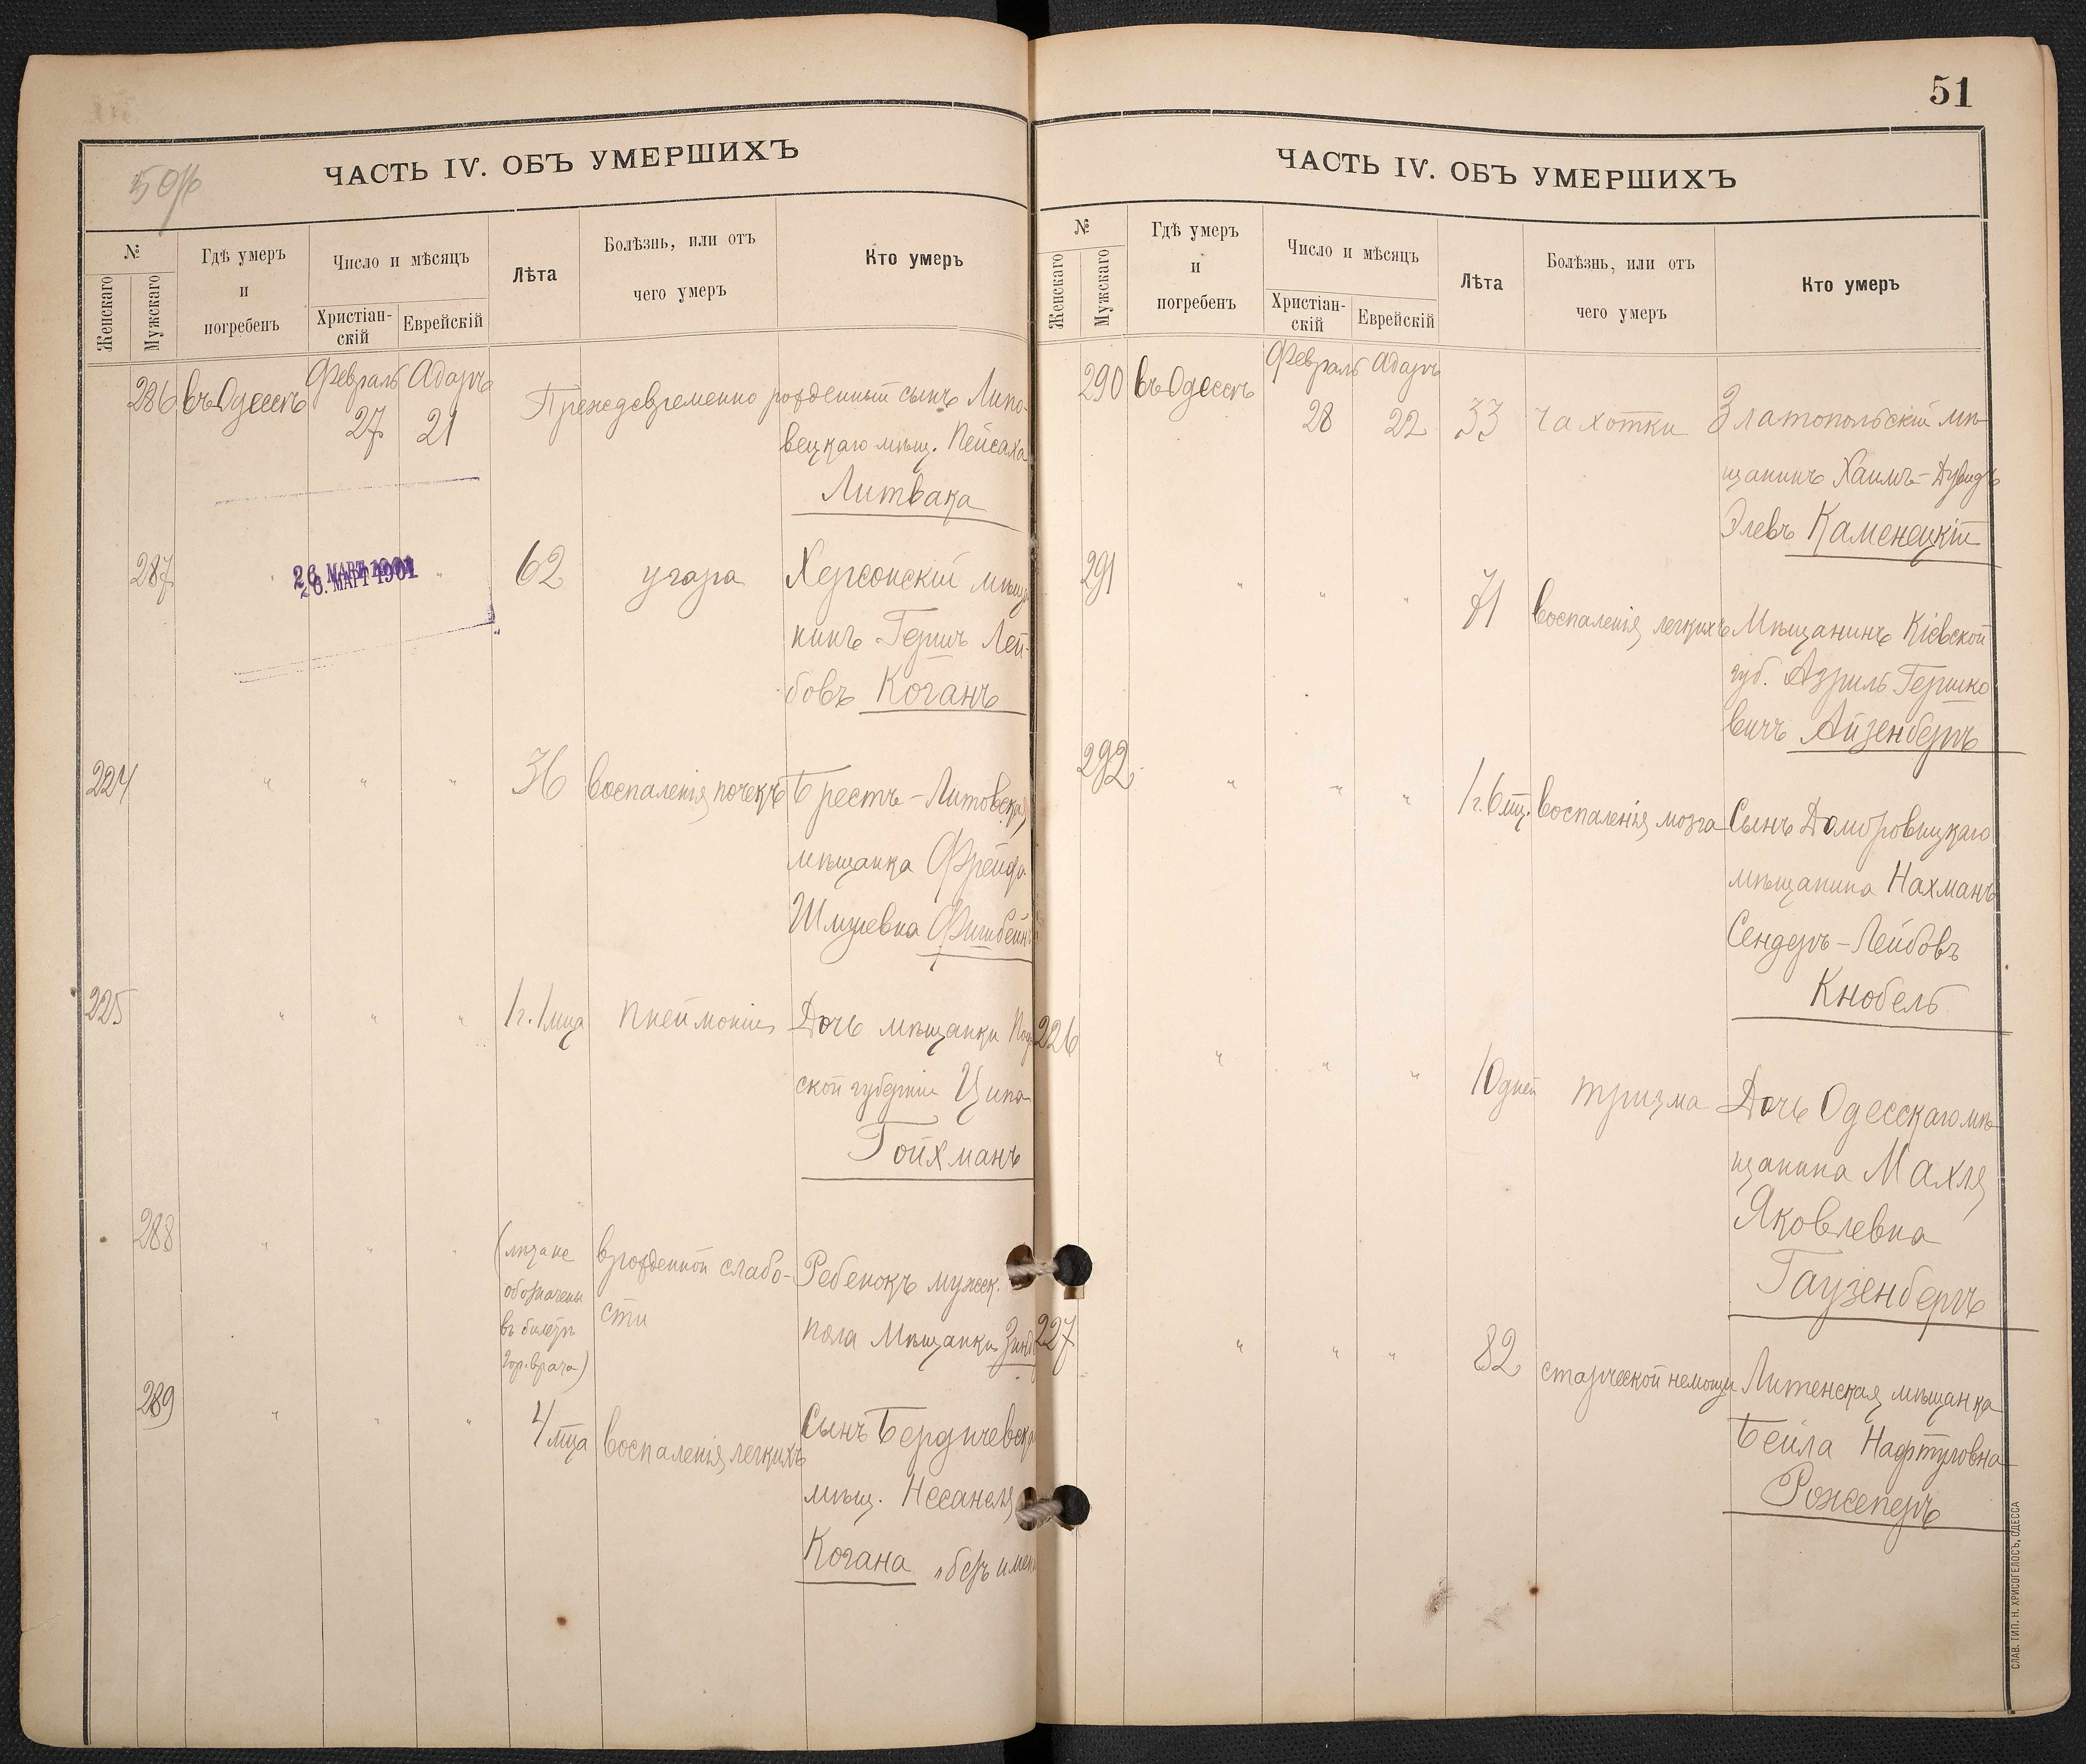 50
ЧАСТЬ IV. ОБЪ УМЕРШИХЪ
№
Женскаго
Мужскаго
Гдѣ умеръ
и
погребенъ
Число и мѣсяцъ
Христіан-
скій
Еврейскій
Лѣта
Болѣзнь, или отъ
чего умеръ
Кто умеръ
286 въ Одессѣ Февраль Адаръ Преждевременно рожденный сынъ Липо-
27 21 вецкаго мѣщ. Пейсаха
Литвака
287 " 62 угара Херсонскій мѣща-
26. МАРТ 1901
нинъ Гершъ Лей-
бовъ Коганъ
224 " " " 36 воспаленія почекъ Брестъ-Литовская
мѣщанка Фрейда
Шмулевна Фишбейнъ
225 " " " 1 г. 1 мца пнеймоніи Дочь мѣщанки Под
ской губерніи Ципа
Гойхманъ
288 " " " (лѣта не
обозначены
въ билетѣ
гор. врача)
врожденной слабо-
сти
Ребенокъ мужск.
пола мѣщанки
289 " " " 4 мца воспаленія легкихъ Сынъ Бердичевск
мѣщ. Несанеля
Когана „безъ имени
51
ЧАСТЬ IV. ОБЪ УМЕРШИХЪ
№
Женскаго
Мужскаго
Гдѣ умеръ
и
погребенъ
Число и мѣсяцъ
Христіан-
скій
Еврейскій
Лѣта
Болѣзнь, или отъ
чего умеръ
Кто умеръ
290 въ Одессѣ Февраль Адаръ
28 22 33 чахотки Златопольскій мѣ-
щанинъ Хаимъ-Дувидъ
Элевъ Каменецкій
291 " " " 71 воспаленія легкихъ Мѣщанинъ Кіевской
губ. Азриль Гершко
вичъ Айзенбергъ
292 " " " 1 г. 6 мц. воспаленія мозга Сынъ Домбровицкаго
мѣщанина Нахманъ
Сендеръ-Лейбовъ
Кнобель
226 " " " 10 дней тризма Дочь Одесскаго мѣ-
щанина Махля
Яковлевна
Гаузенбергъ
227 " " " 82 старческой немощи Литенская мѣщанка
Бейла Нафтуловна
Рожеперъ
СЛАВ. ТИП. Н. ХРИСОГЕЛОСЪ, ОДЕССА